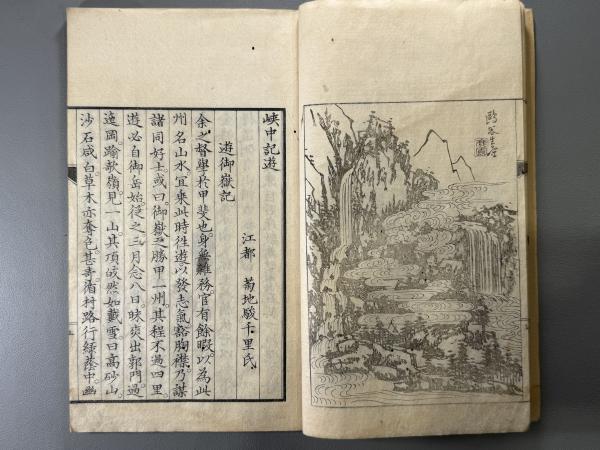 峡中記遊
遊御嶽記
江都　菊地駿千里氏
余之督學於甲斐也。身無雜務。官有餘暇。以為此
州名山水宜乘此時往遊以發志氣豁胸襟。乃謀
諸同好士。或曰御嶽之勝甲一州。其程不過四里。
遊必自御岳始。從之。三月念八日。昧爽出郭門。過
逸岡。踰歇嶺。見一山。其頂皎然如戴雪。曰高砂山。
沙石咸白。草木亦奪色。甚奇。循村路行緑蔭中。幽